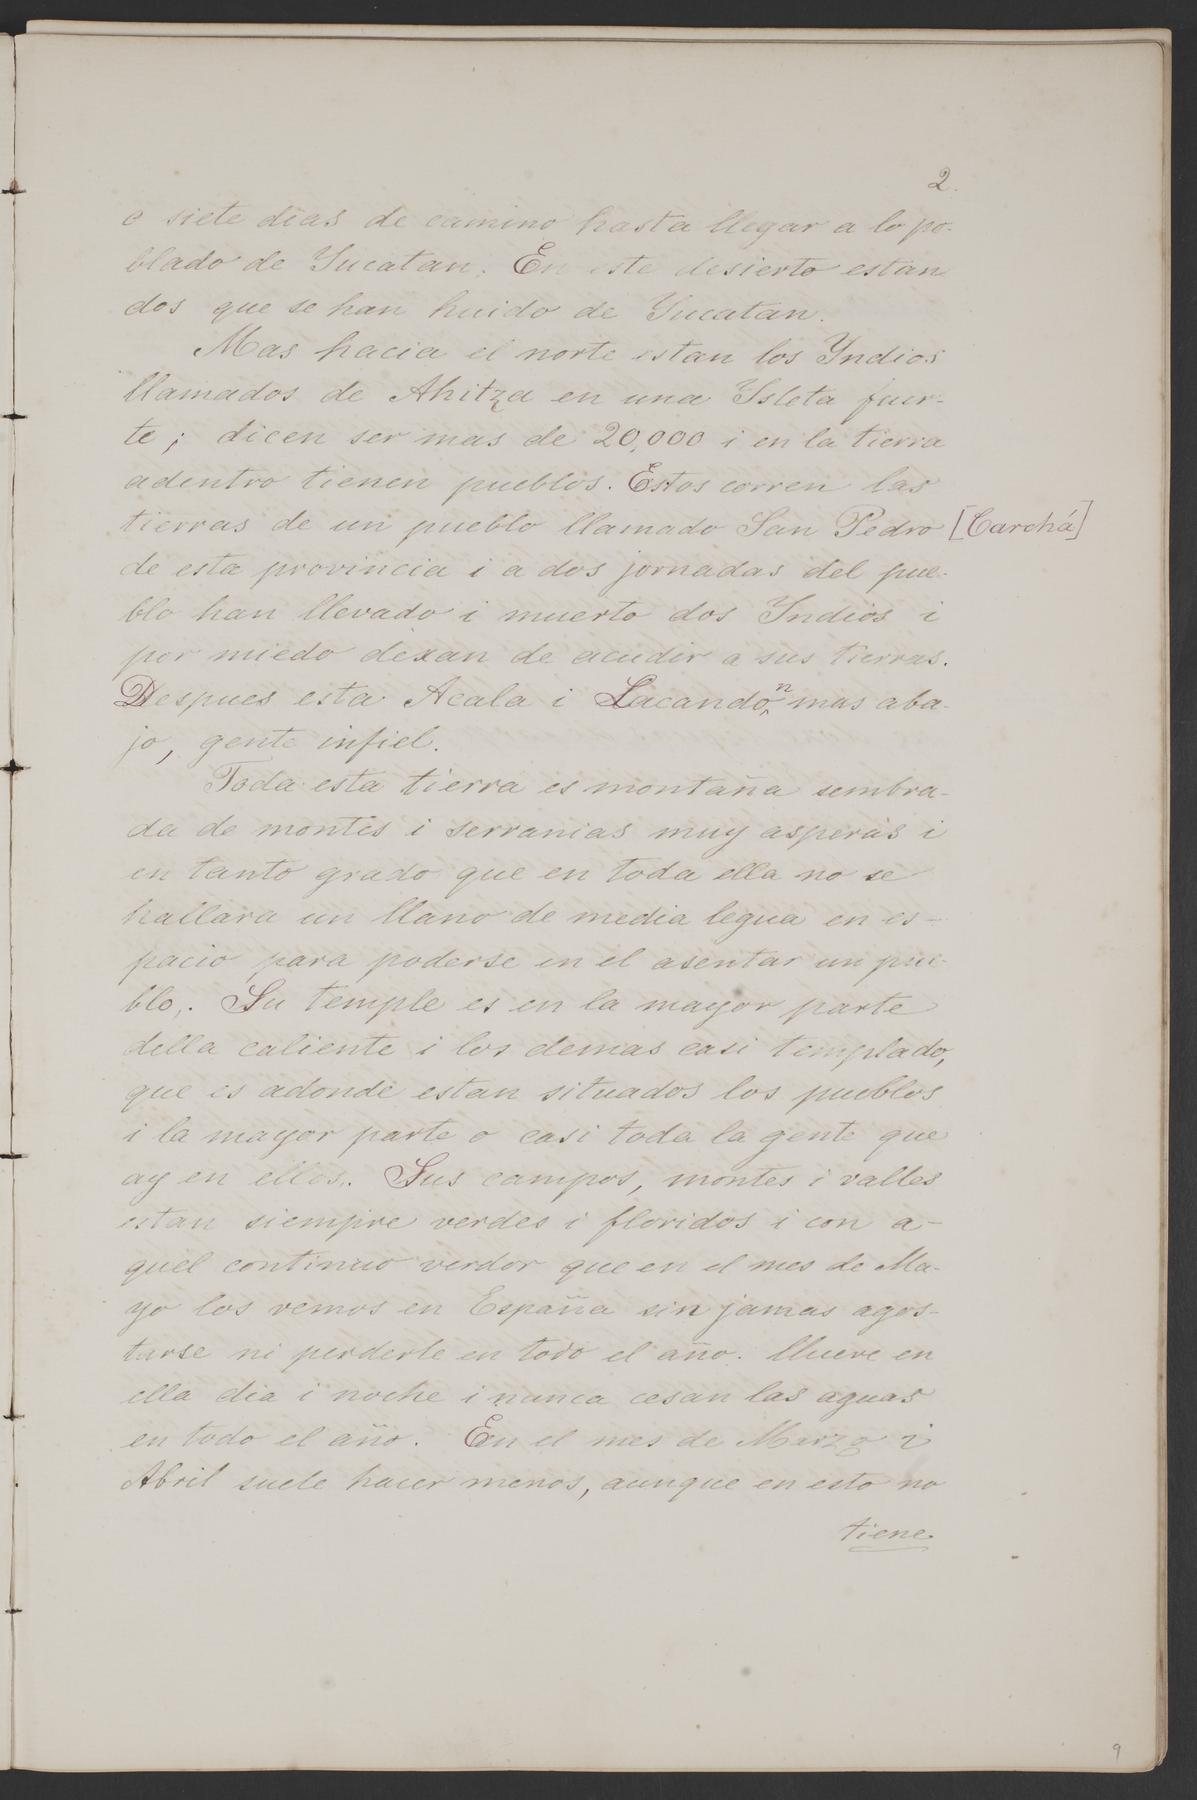 2.
o siete dias de camino hasta llegar a lo po-
blado de Yucatan. En este desierto estan
dos que se han huido de Yucatan.
Mas hacia el norte estan los Yndios
llamados de Ahitza en una Ysleta fuer-
te; dicen ser mas de 20,000 i en la tierra
adentro tienen pueblos. Estos corren las
tierras de un pueblo llamado San Pedro [Carchá]
de esta provincia i a dos jornadas del pue-
blo han llevado i muerto dos Yndios i
por miedo dexan de acudir a sus tierras.
Despues esta Acala i Lacandon mas aba-
jo, gente infiel.
Toda esta tierra es montaña sembra-
da de montes i serranias muy asperas i
en tanto grado que en toda ella no se
hallara un llano de media legua en es-
pacio para poderse en el asentar un pue-
blo. Su temple es en la mayor parte
della caliente i los demas casi templado,
que es adonde estan situados los pueblos
i la mayor parte o casi toda la gente que
ay en ellos. Sus campos, montes i valles
estan siempre verdes i floridos i con a-
quel continuo verdor que en el mes de Ma-
yo los vemos en España sin jamas agos-
tarse ni perderle en todo el año. llueve en
ella dia i noche i nunca cesan las aguas
en todo el año. En el mes de Marzo i
Abril suele hacer menos, aunque en esto no
tiene
9